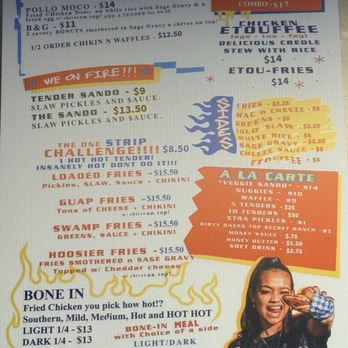 POLLO MOCO - $14
Fried Chicken over white rice with Sage Gravy & a
fried egg w/chives on top! ADD A TENDER for $4.25
B&G - $11
2 savory BONUTS smothered in Sage Gravy w chives on top!
1/2 ORDER CHIKIN N WAFFLES - $12.50
COMBO - $17
CHICKEN
ETOUFFEE
DELICIOUS CREOLE
STEW WITH RICE
$14
ETOU-FRIES
$14
WE ON FIRE!!!
TENDER SANDO - $9
SLAW PICKLES AND SAUCE.
THE SANDO - $13.50
SLAW PICKLES AND SAUCE.
THE ONE STRIP
CHALLENGE!!!! $8.50
1 HOT HOT TENDER!
INSANELY HOT DON'T DO IT!!!
LOADED FRIES - $15.50
Pickles, SLAW, Sauce + CHIKIN!
GUAP FRIES - $15.50
Tons of CHEESE + CHIKIN!
w/chives on top!
SWAMP FRIES - $15.50
GREENS, SAUCE + CHIKIN!
HOOSIER FRIES - $15.50
FRIES SMOTHERED n SAGE GRAVY
Topped w/ Cheddar cheese
SIDES
FRIES - $5.25
MAC n CHEESE - $6
GREENS - $6
COLD SLAW
WHITE RICE
SAGE GRAVY
CHEESE SAUCE
ETOUFFEE $6
A LA CARTE
"VEGGIE SANDO" - $14
NUGGIES - $10
WAFFLE - $9
5 TENDERS - $25
10 TENDERS - $50
EXTRA PICKLES - $1
DIRTY DAVES TOP SECRET RANCH - $1
MONEY SAUCE - $.75
HONEY BUTTER - $1.50
SOFT DRINK - $2.75
BONE IN
Fried Chicken you pick how hot!?
Southern, Mild, Medium, Hot and HOT HOT
LIGHT 1/4 - $13
DARK 1/4 - $13
BONE-IN MEAL
with Choice of a side
LIGHT/DARK